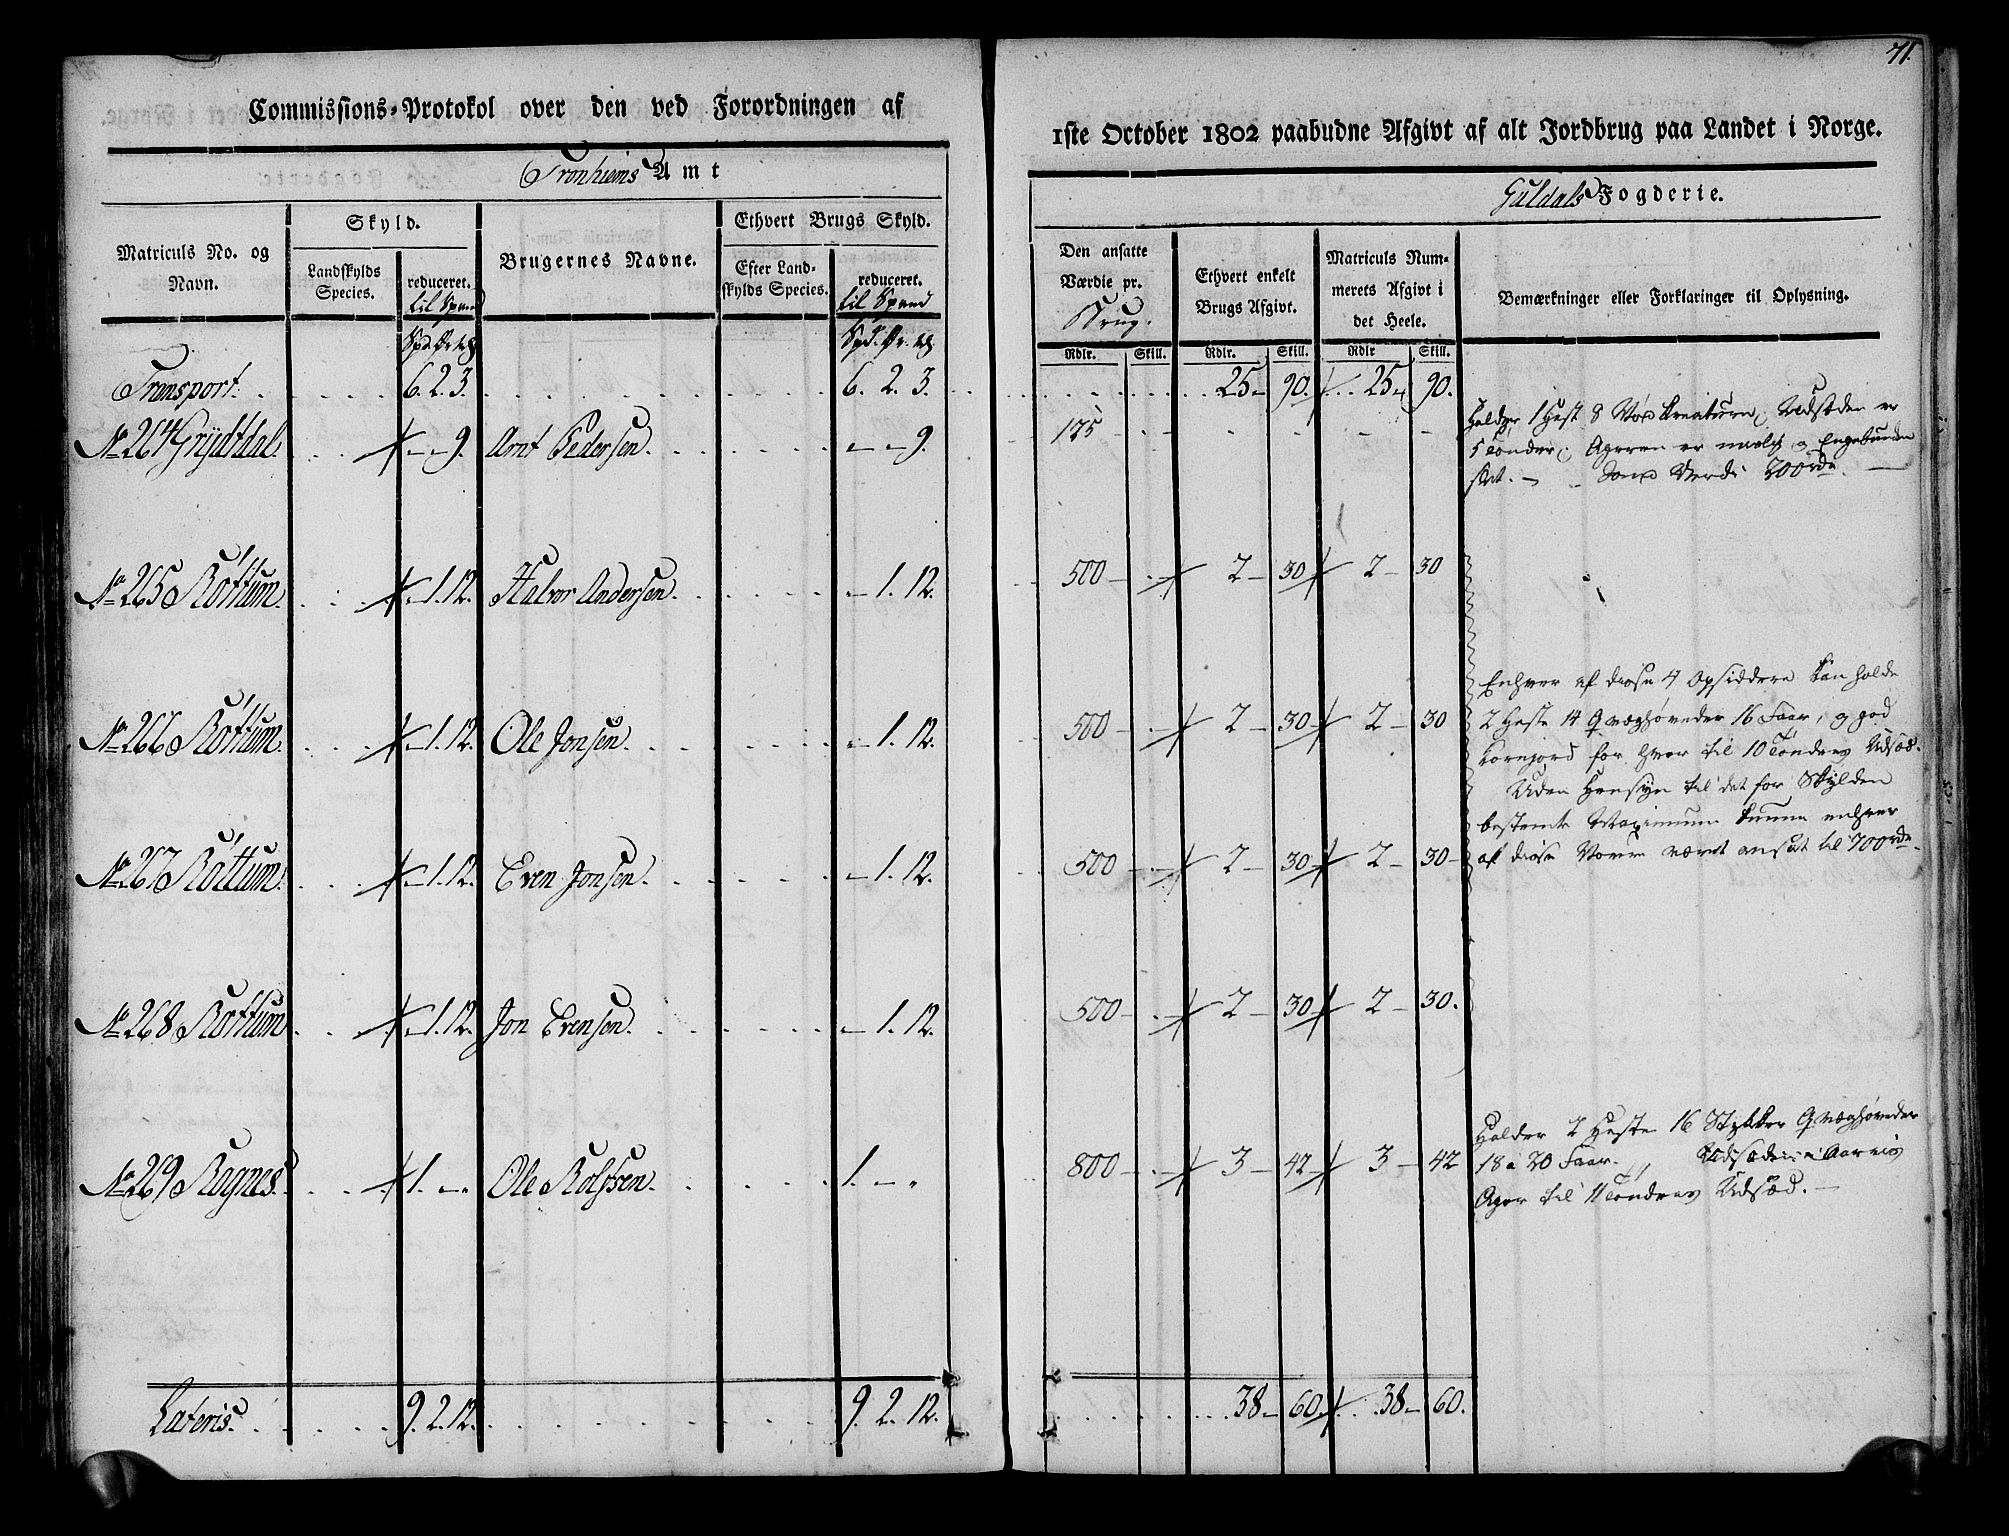 71.
Commissions-Protokol over den ved Forordningen af
1ste October 1802 paabudne Afgivt af alt Jordbrug paa Landet i Norge.
Tronhiems Amt
Guldals Fogderie.
Matriculs No. og Navn.
Skyld.
Landskylds Species.
reduceret.
til Spand
Brugernes Navne.
Ethvert Brugs Skyld.
Efter Landskylds Species.
reduceret.
til Spand
Den ansatte Værdie pr.
Brug.
Ethvert enkelt Brugs Afgivt.
Matriculs Nummerets Afgivt i det Heele.
Bemærkninger eller Forklaringer til Oplysning.
Rdlr. Skill. Rdlr. Skill. Rdlr Skill.
Transport. 6. 2. 3. 6. 2. 3. 25 - 90. 25 - 90.
No 264 Grijdtdal. - - 9. Arnt Pedersen. - - 9. 175 - -
Holder 1 Hest 8 Creature, Udsæden er
5 Tønder, Ageren er og Engebunden
slet. - Værdi 200 rd.
No 265 Rottum. - 1. 12. Halvor Andersen. - 1. 12. 500 - 2 - 30 2 - 30
No 266 Rottum. - 1. 12. Ole Jonsen. - 1. 12. 500 - 2 - 30 2 - 30
No 267 Rottum. - 1. 12. Even Jonsen. - 1. 12. 500 - 2 - 30 2 - 30
Enhver af disse 4 Opsiddere kan holde
2 Heste 14 Qvæghøveder 16 Faar, og god
Kornjord for hver til 10 Tønders Udsæd.
Uden Hensyn til det for Skylden
bestemte Maximum kunne enhver
af disse været ansat til 700 rd.
No 268 Rottum - 1. 12. Jon Evensen. - 1. 12. 500 - 2 - 30 2 - 30.
No 269 Rognes. 1. - - Ole Rolfsen. 1. - - 800 - 3 - 42 3 - 42
Holder 2 Heste 16 Stykker Qvæghøveder
18 a 20 Faar. Udsæden
Ager til 11 Tønders Udsæd. -
Lateris. 9. 2. 12. 9. 2. 12. 38 - 60 38 - 60.